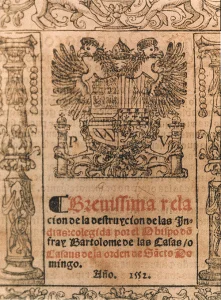 P V
Breuissima rela
cion de la destruycion de las In
dias: colegida por el Obispo dõ
fray Bartolome de las Casas / o
Casaus de la orden de Sãcto Do
mingo.
Año. 1552.